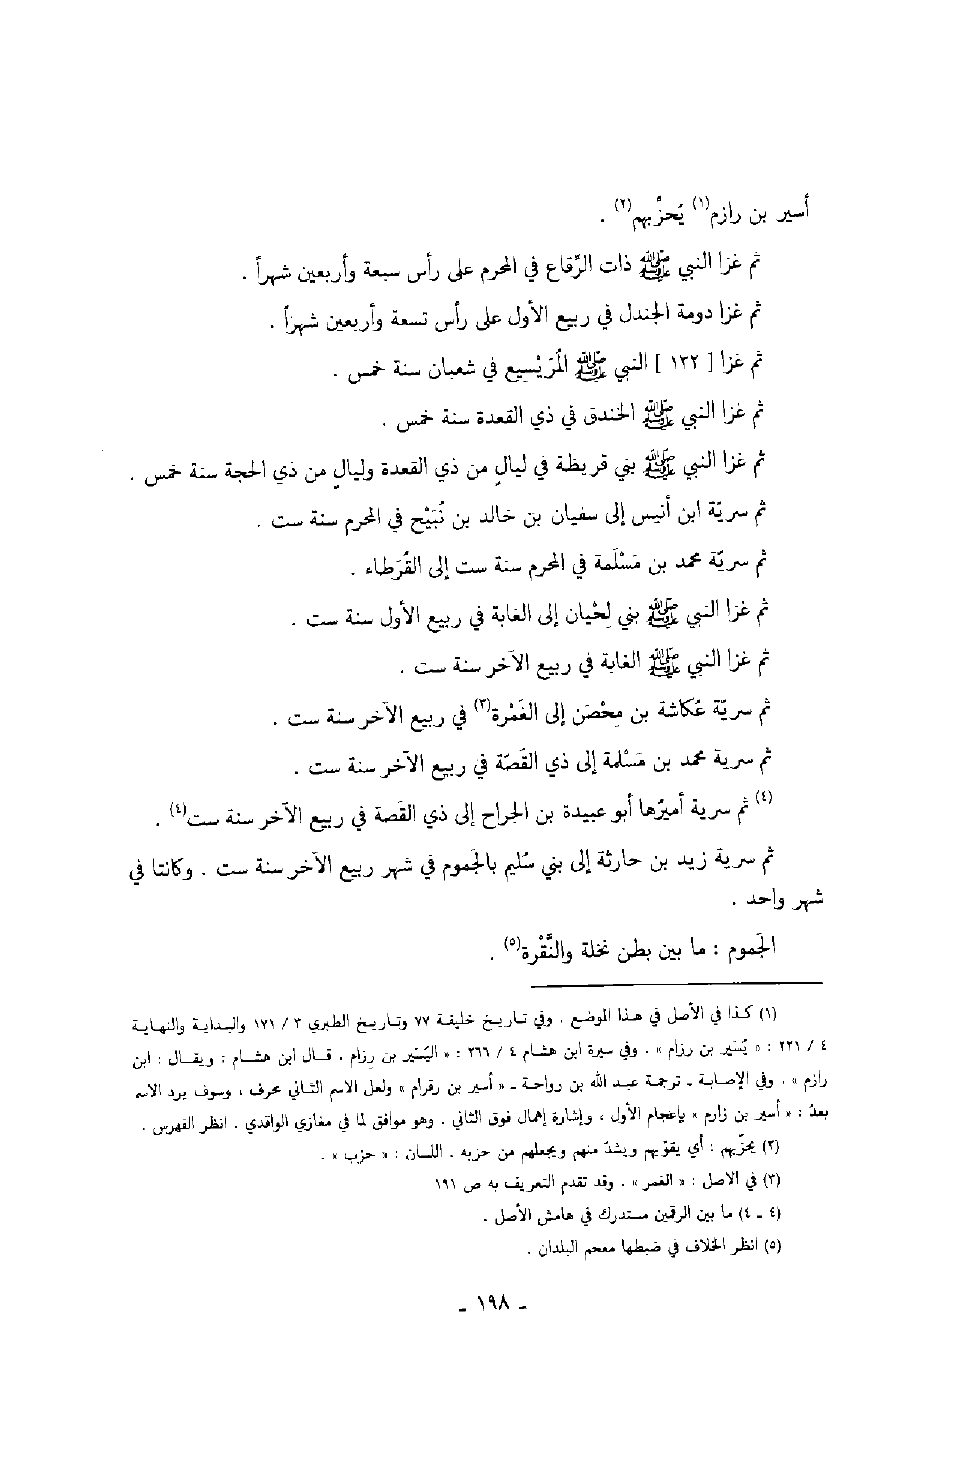 أسير بن رازم(١) يُحزِّبهم(٢) .
ثم غزا النبي ﷺ ذات الرِّقاع في المحرم على رأس سبعة وأربعين شهراً .
ثم غزا دومة الجندل في ربيع الأول على رأس تسعة وأربعين شهراً .
ثم غزا [ ١٣٢ ] النبي ﷺ المُرَيْسيع في شعبان سنة خمس .
ثم غزا النبي ﷺ الخندق في ذي القعدة سنة خمس .
ثم غزا النبي ﷺ بني قريظة في ليالٍ من ذي القعدة وليالٍ من ذي الحجة سنة خمس .
ثم سريّة ابن أنيس إلى سفيان بن خالد بن نُبَيْح في المحرم سنة ست .
ثم سريّة محمد بن مَسْلَمة في المحرم سنة ست إلى القُرَطاء .
ثم غزا النبي ﷺ بني لِحْيان إلى الغابة في ربيع الأول سنة ست .
ثم غزا النبي ﷺ الغابة في ربيع الآخر سنة ست .
ثم سريّة عُكاشة بن مِحْصَن إلى الغَمْرة(٣) في ربيع الآخر سنة ست .
ثم سرية محمد بن مَسْلمة إلى ذي القَصّة في ربيع الآخر سنة ست .
(٤) ثم سرية أميرُها أبو عبيدة بن الجراح إلى ذي القَصة في ربيع الآخر سنة ست(٤) .
ثم سرية زيد بن حارثة إلى بني سُليم بالجَموم في شهر ربيع الآخر سنة ست . وكانتا في
شهر واحد .
الجَموم : ما بين بطن نخلة والنَّقْرة(٥) .
(١) كذا في الأصل في هذا الموضع . وفي تاريخ خليفة ٧٧ وتاريخ الطبري ٣ / ١٧١ والبداية والنهاية
٤ / ٢٢١ : « يُسَير بن رزام » . وفي سيرة ابن هشام ٤ / ٢٦٦ : « اليُسَير بن رِزام . قال ابن هشام : ويقال : ابن
رازم » . وفي الإصابة ـ ترجمة عبد الله بن رواحة ـ « أسير بن رقرام » ولعل الاسم الثاني محرف ، وسوف يرد الاسم
بعدُ : « أسير بن زارم » بإعجام الأول ، وإشارة إهمال فوق الثاني . وهو موافق لما في مغازي الواقدي . انظر الفهرس .
(٢) يحزّبهم : أي يقوّيهم ويشدّ منهم ويجعلهم من حزبه . اللسان : « حزب » .
(٣) في الاصل : « الغمر » . وقد تقدم التعريف به ص ١٩١
(٤ ـ ٤) ما بين الرقمين مستدرك في هامش الأصل .
(٥) انظر الخلاف في ضبطها معجم البلدان .
ـ ١٩٨ ـ